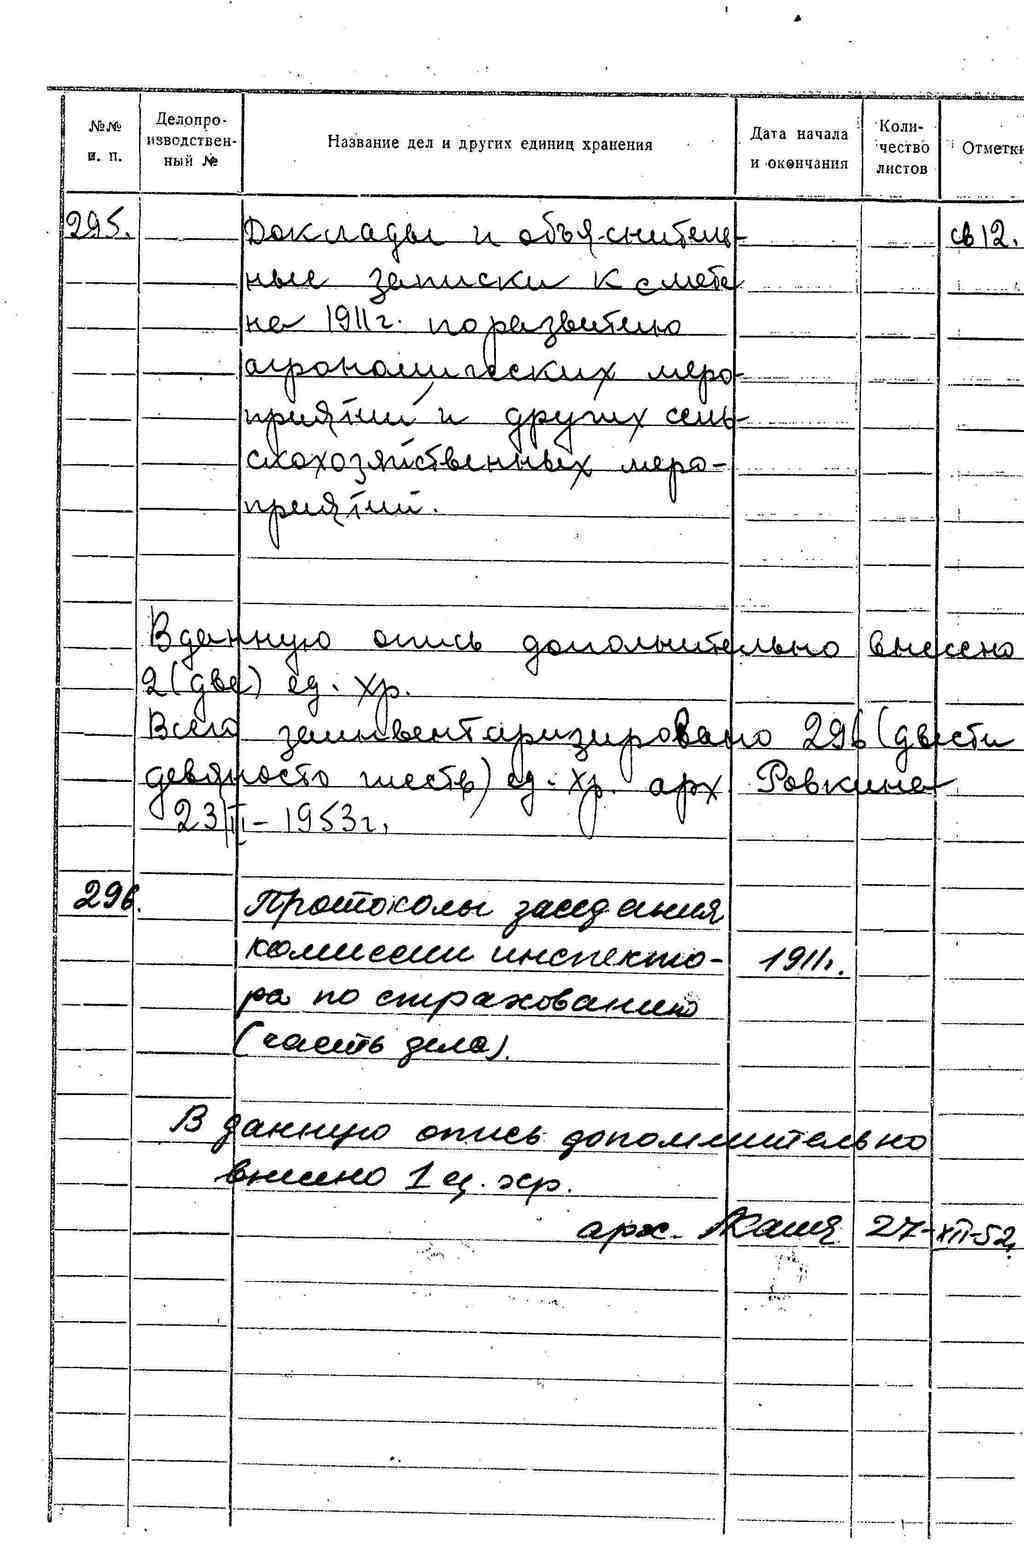 №№ п. п.
Делопроизводственный №
Название дел и других единиц хранения
Дата начала и окончания
Количество листов
Отметки
295. Доклады и объяснитель- св 12.
ные записки к смете
на 1911 г. по развитию
агрономических меро-
приятий и других сель-
скохозяйственных меро-
приятий.
В данную опись дополнительно внесено
2 (две) ед. хр.
Всего заинвентаризировано 296 (двести
девяносто шесть) ед. хр. арх Ровкина
23/II - 1953 г.
296. Протоколы заседания
комиссии инспекто- 1911г.
ра по страхованию
(часть дела).
В данную опись дополнительно
внесено 1 ед. хр.
арх. 27-XII-52